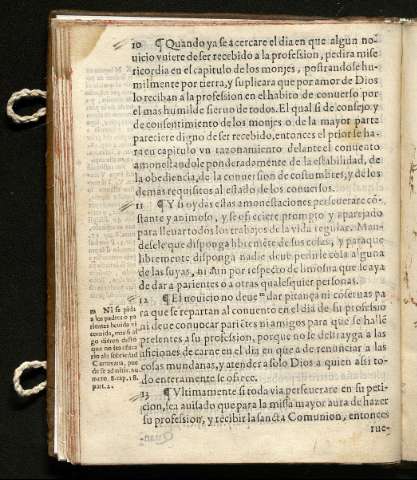 10 ¶ Quando ya se acercare el dia en que algun no-
uicio vuiere de ser recebido a la profession, pedira mise
ricordia en el capitulo de los monjes, postrandose hu-
milmente por tierra, y suplicara que por amor de Dios
lo reciban a la profession en el habito de conuerso por
el mas humilde sieruo de todos. El qual si de consejo y
de consentimiento de los monjes o de la mayor parte
pareciere digno de ser recebido, entonces el prior le ha-
ra en capitulo vn razonamiento delante el conuento
amonestandole ponderadamēte de la estabilidad, de
la obediencia, de la conuersion de costumbres, y de los
demas requisitos al estado de los conuersos.
11 ¶ Y si oydas estas amonestaciones perseuerare cō-
stante y animoso, y se ofreciere prompto y aparejado
para lleuar todos los trabajos de la vida regular. Man-
desele que disponga libremēte de sus cosas, y para que
libremente disponga nadie deue pedirle cosa alguna
de las suyas, ni aun por respecto de limosna que le aya
de dar a parientes o a otras qualesquier personas.
12 ¶ El nouicio no deue m dar pitança ni cosernas pa
ra que se repartan al conuento en el dia de su professiō
ni deue conuocar pariētes ni amigos para que se hallē
presentes a su profession, porque no se destrayga a las
aficiones de carne en el dia en que a de renunciar a las
cosas mundanas, y atender a solo Dios a quien assi to-
do enteramente se ofrece.
m Ni se pida
a los padres o pa
rientes
part. 2.
13 ¶ Vltimamente si toda via perseuerare en su peti-
cion, sea auisado que para la missa mayor aura de hazer
su profession, y recibir la sancta Comunion, entonces
rue-